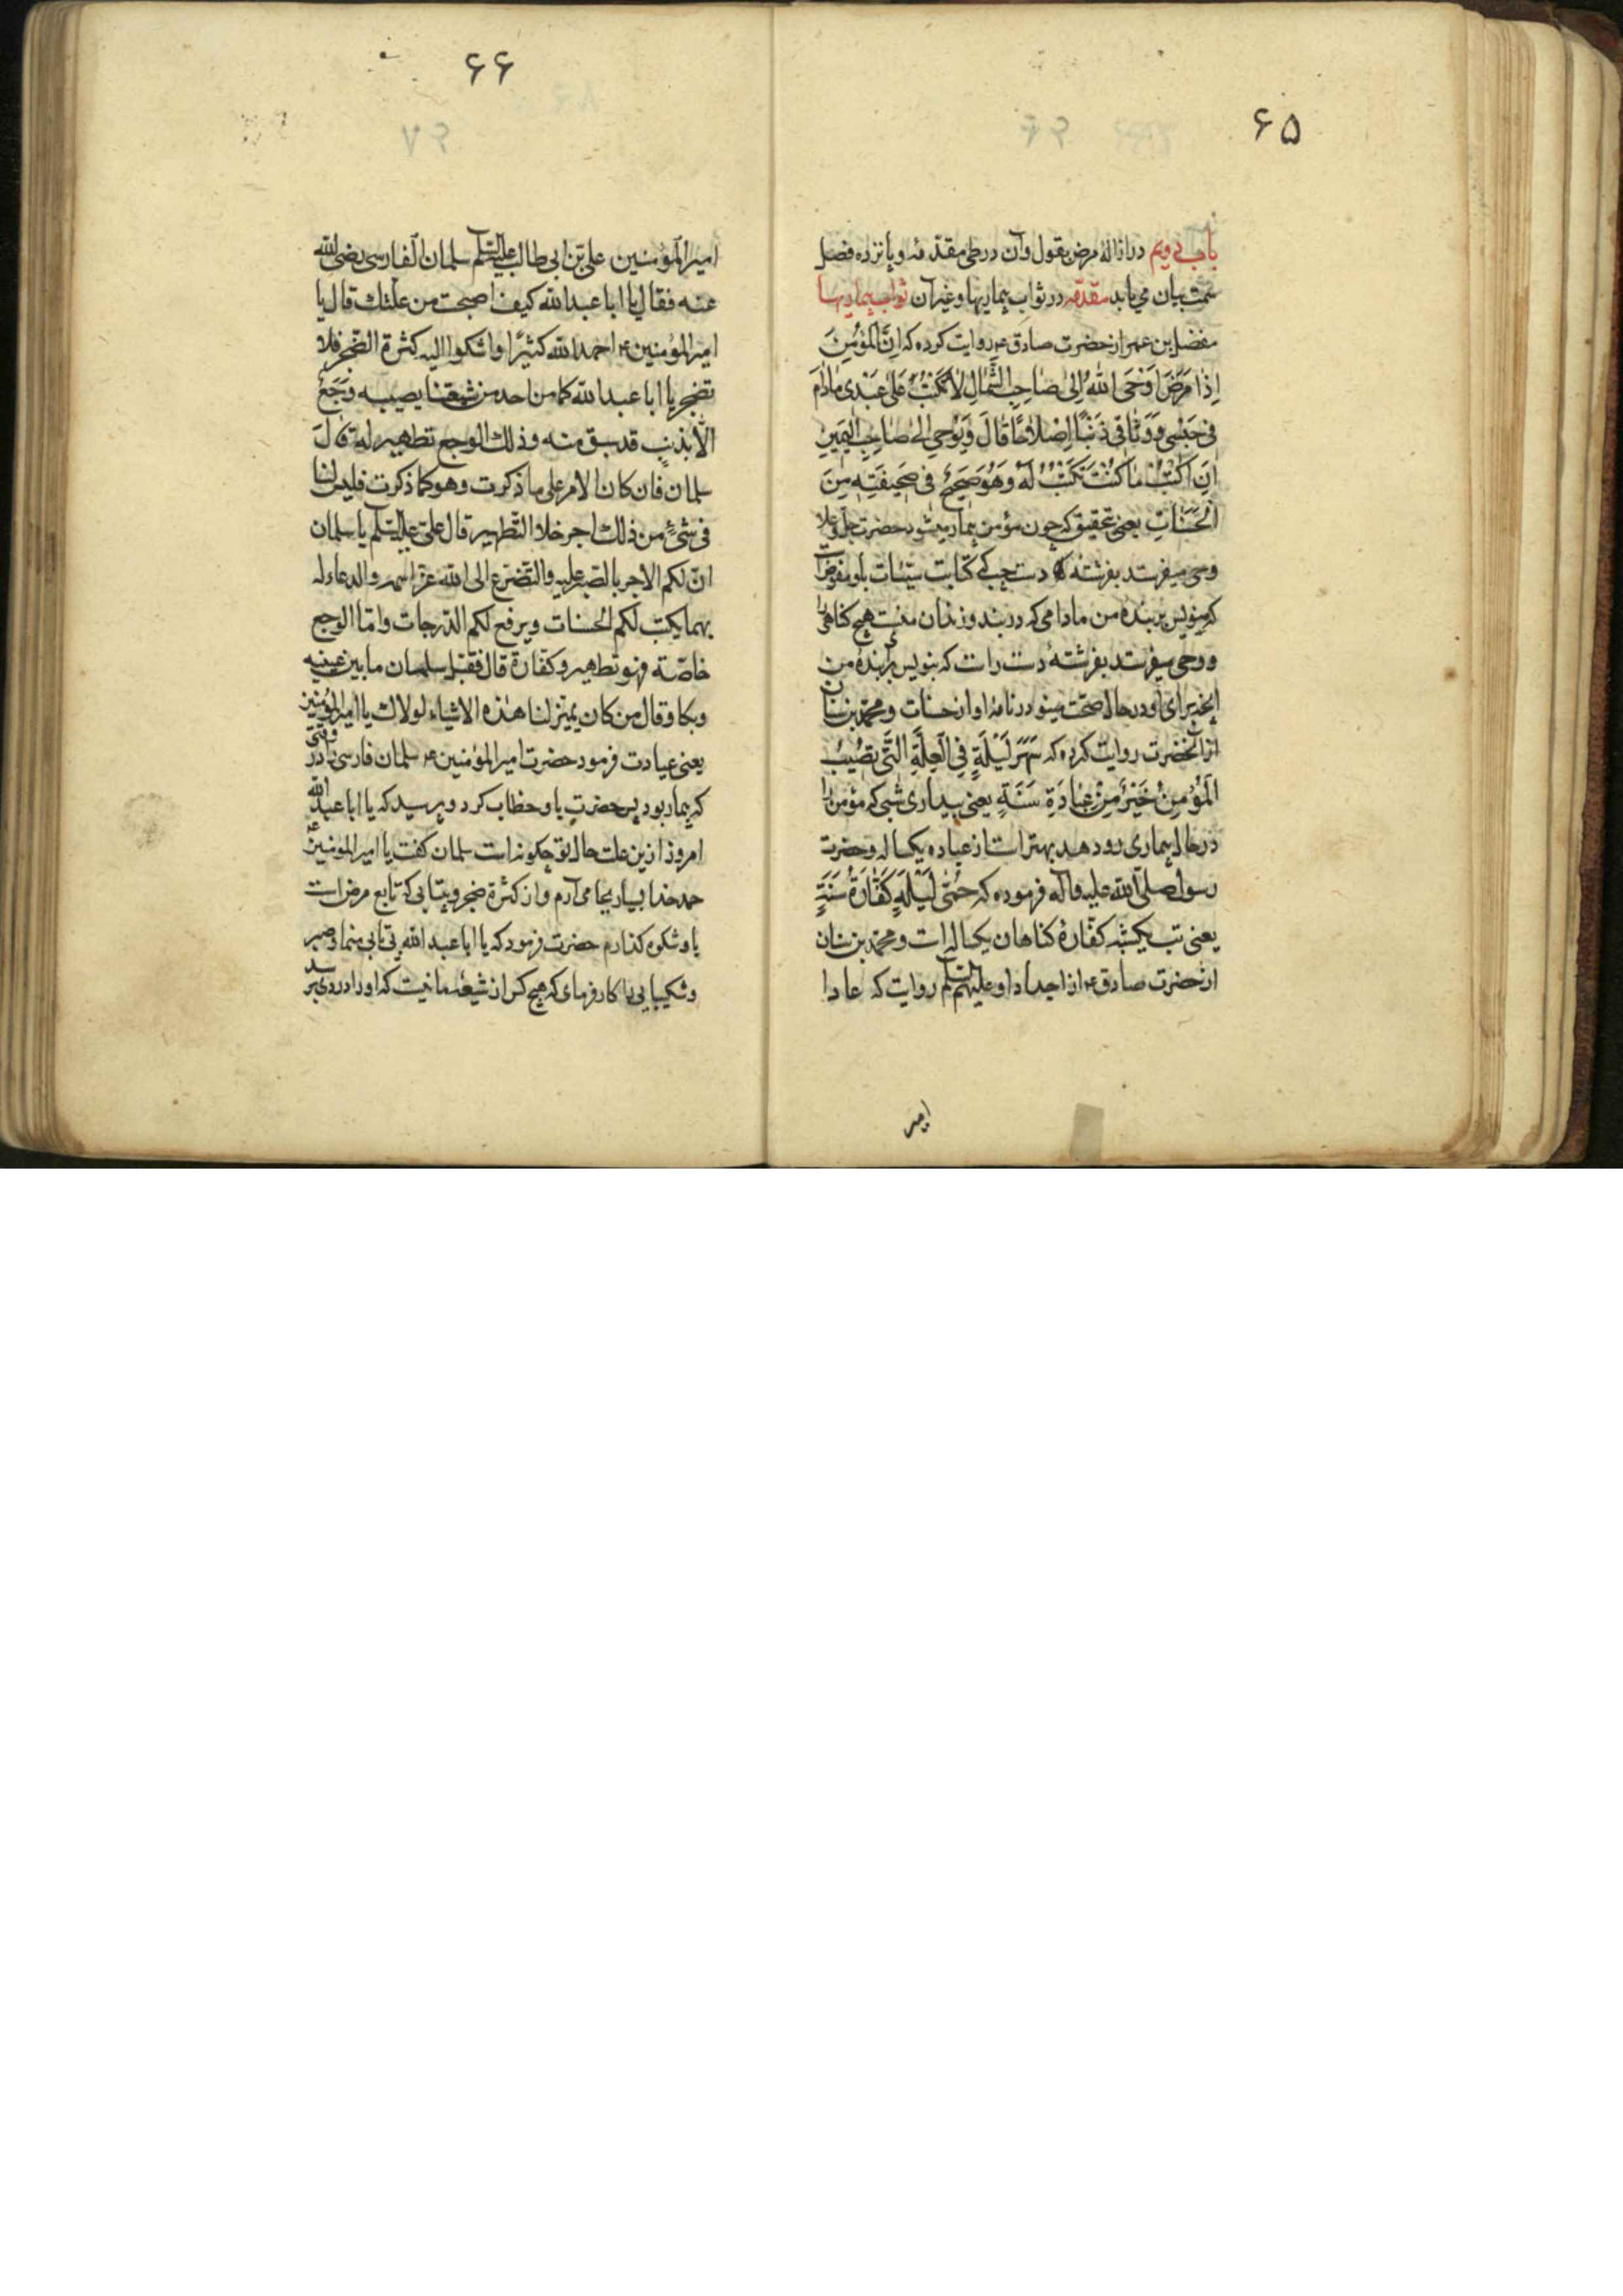 ۶۵
باب دویم در ازالهٔ مرض بقول و آن در طی مقدمه و پانزده فصل
سمت بیان می یابد مقدمه در ثواب بیماریها و غیر آن ثواب بیماریها
مفضل بن عمر از حضرت صادق ع روایت کرده که اِنَّ المُؤمِنَ
اِذا مَرَضَ اَوْحَی اللهُ اِلی صاحِبِ الشِّمالِ لا تَکتُبْ عَلی عَبْدی مادامَ
فی حَبْسی وَ وَثاقی ذَنْبًا اِضلاحًا قالَ وَ یُوحی اِلی صاحِبِ الیَمینِ
اَنِ اکْتُبْ ما کُنْتَ تَکْتُبُ لَهُ وَ هُوَ صَحیحٌ فی صَحیفَتِه مِنَ
الْحَسَناتِ یعنی بتحقیق که چون مؤمن بیمار میشود حضرت جلّ و علا
وحی میفرستد بفرشته دست چپ که کتابت سیّئات باو مفوض است
که منویس بر بنده من مادامی که در بند و زندان منست هیچ کناهی را
و وحی میفرستد بفرشتهٔ دست راست که بنویس بر بندهٔ من
آنچه برای او در حال صحت مینو در نامهٔ او از حسنات و محمد بن سنان
از آنحضرت روایت کرده که سَهَرُ لَیْلَةٍ فِی الْعِلَّةِ الَّتی تُصیبُ
الْمُؤمِنَ خَیْرٌ مِنْ عِبادَةِ سَنَةٍ یعنی بیداری شبی که مؤمن را
در حال بیماری رو دهد بهتر است از عباده یکساله و حضرت
رسول صلّی الله علیه و آله فرموده که حُمّی لَیْلَةٍ کَفّارَةُ سَنَةٍ
یعنی تب یکشبه کفّارهٔ کناهان یکساله است و محمّد بن سنان
از حضرت صادق ع از اجداد او علیهم السلم روایت که عادا
امیر
۶۶
امیر المؤمنین علی بن ابی طالب علیه السلم سلمان الفارسی رضی الله
عنه فقال یا ابا عبد الله کیف اصبحت من علّتك قال یا
امیر المؤمنین ع احمد الله کثیرًا و اشکوا الیه کثرة الضّجر فلا
تضجر یا ابا عبد الله کما من احد من شیعتنا یصیبه وَجَعٌ
الّا بذنبٍ قد سبق منه و ذلك الوجع تطهیر له قال
سلمان فان کان الامر علی ما ذکرت و هو کما ذکرت فلیس لنا
فی شیٔ من ذلك اجر خلا التّطهیر قال علی علیه السلم یا سلمان
انّ لکم الاجر بالصّبر علیه و التّضرّع الی الله عزّ اسمه و الدعاء له
بهما یکتب لکم الحسنات و یرفع لکم الدّرجات و امّا الوجع
خاصّة فهو تطهیر و کفّارة قال فقبّل سلمان ما بین عینیه
و بکا و قال من کان یمیّز لنا هذه الاشیاء لولاك یا امیر المؤمنین
یعنی عیادت فرمود حضرت امیر المؤمنین ع سلمان فارسی را در وقتی
که بیمار بود پس حضرت باو خطاب کرد و پرسید که یا ابا عبد الله
امروز ازین علت حال تو چکونه است سلمان کفت یا امیر المؤمنین ع
حمد خدا بسیار بجا می آرم و از کثرة ضجر و بیتابی که تابع مرض است
باو شکوه کذارم حضرت فرمود که یا ابا عبد الله بی تابی منما و صبر
و شکیبایی را کار فرمای که هیچ کس از شیعهٔ ما نیست که او را دردی برسد